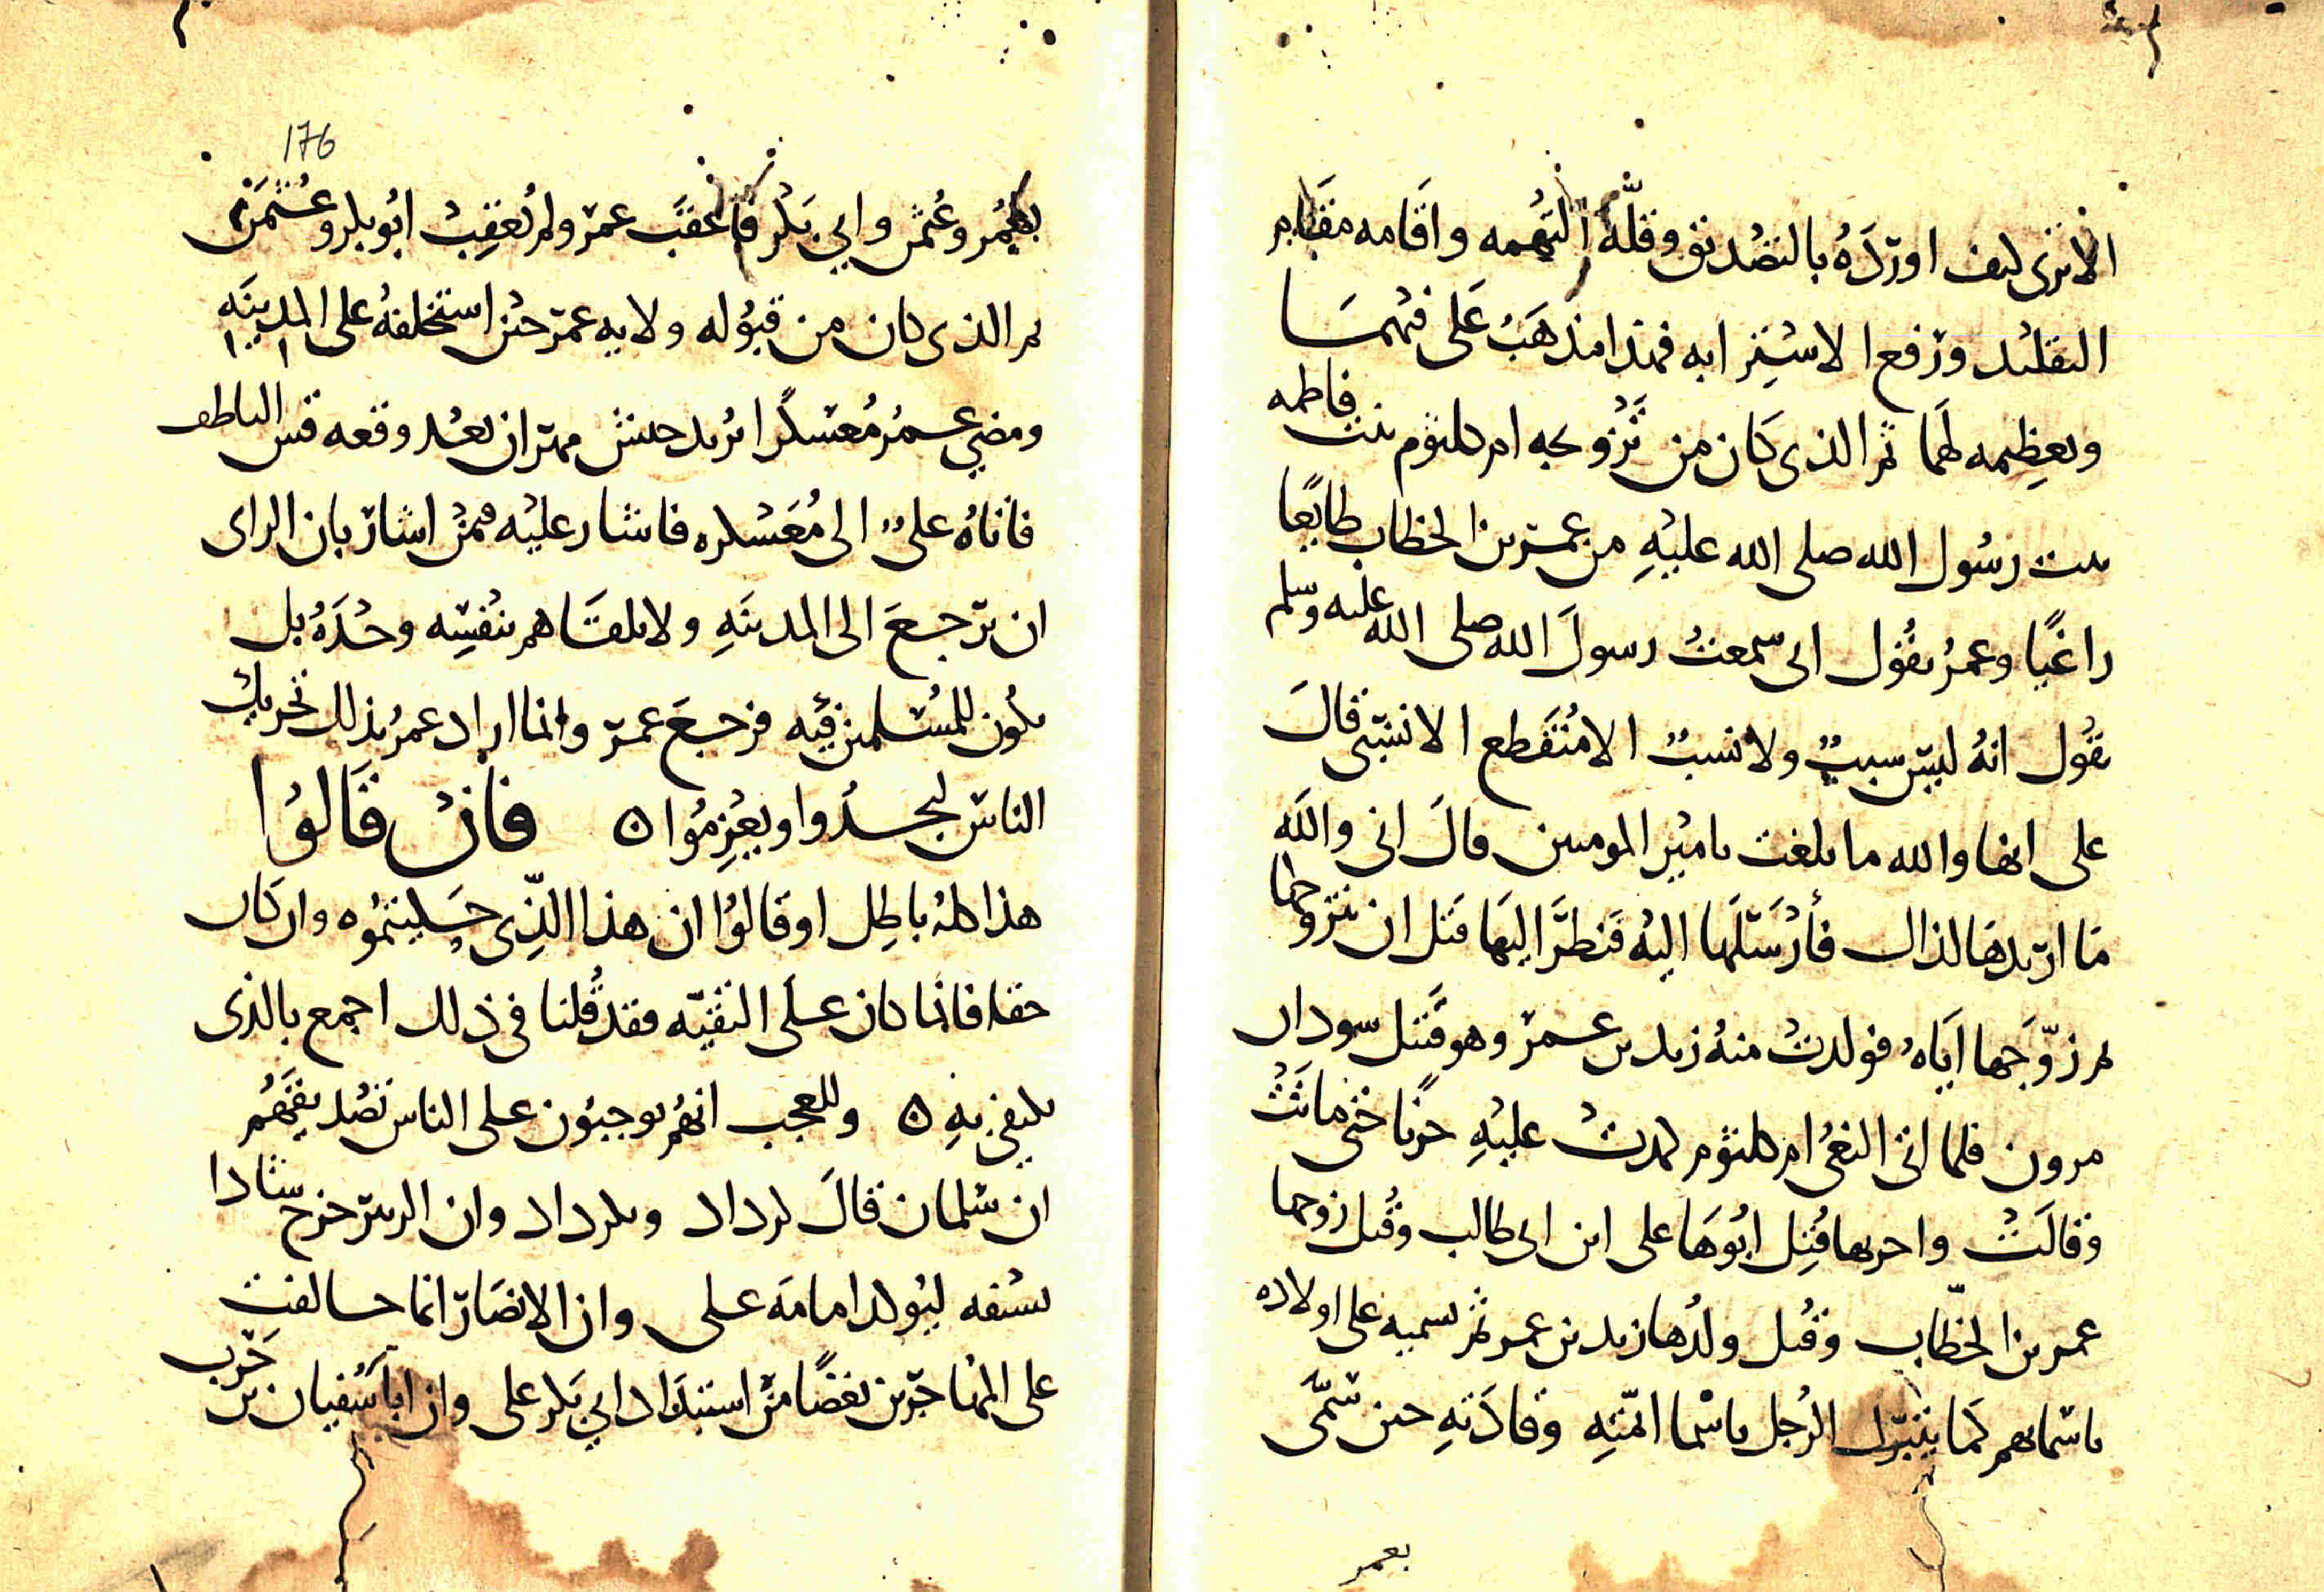 الا ترى كيف اورده بالتصديق وقلة التهمه واقامه مقام
التقليد ورفع الاستبرابه فهذا مذهب على فيهما
وتعظيمه لهما ثم الذى كان من تزويجه ام كلثوم بنت فاطمه
بنت رسول الله صلى الله عليه من عمر بن الخطاب طايعا
راغبا وعمر يقول انى سمعت رسول الله صلى الله عليه وسلم
يقول انه ليس سبب ولا نسب الا منقطع الا نسبى قال
على انها والله ما بلغت يامير المومنين قال انى والله
ما اريدها لذاك فأرسلها اليه فنظر اليها قبل ان يتزوجها
ثم زوجها اياه فولدت منه زيد بن عمر وهو قتيل سودان
مرون فلما اتى النعى ام كلثوم كمدت عليه حزنا حتى ماتت
وقالت واحربها قتل ابوها على ابن ابى طالب وقتل زوجها
عمر بن الخطاب وقتل ولدها زيد بن عمر ثم تسميه على اولاده
باسمايهم كما يتبرك الرجل باسما ائمته وقادته حين سمى
بعمر
176
بعمر وعثمن وابي بكر فاعقب عمر ولم يعقب ابو بكر وعثمن
ثم الذى كان من قبوله ولايه عمر حين استخلفه على المدينه
ومضى عمر معسكرا يريد جيش مهران بعد وقعه قس الناطف
فاتاه على الى معسكره فاشار عليه فيمن اشار بان الراى
ان يرجع الى المدينه ولا يلقاهم بنفسه وحده بل
يكون للمسلمين فيه فرجع عمر وانما اراد عمر بذلك تحريك
الناس ليجدوا ويعزموا ه فان قالوا
هذا كله باطل او قالوا ان هذا الذى حكيتموه وان كان
حقا فانما كان على التقيه فقد قلنا فى ذلك اجمع بالذى
يكتفى به ه وللعجب انهم يوجبون على الناس تصديقهم
ان سلمان قال كرداد وبكرداد وان الزبير خرج شادا
بسيفه ليوكد امامه على وان الانصار انما حالفت
على المهاجرين بغضا من استبداد ابي بكر على وان ابا سفيان بن حرب